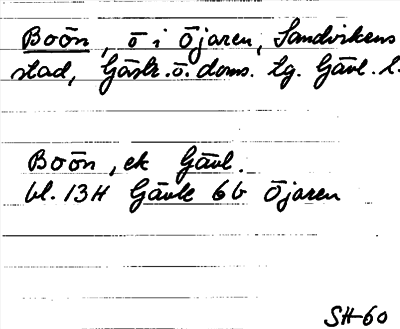 Boön, ö i Öjaren, Sandvikens
stad, Gästr. ö. doms. tg. Gävl. l.
Boön, ek Gävl.
bl. 13H Gävle 6b Öjaren
SH-60